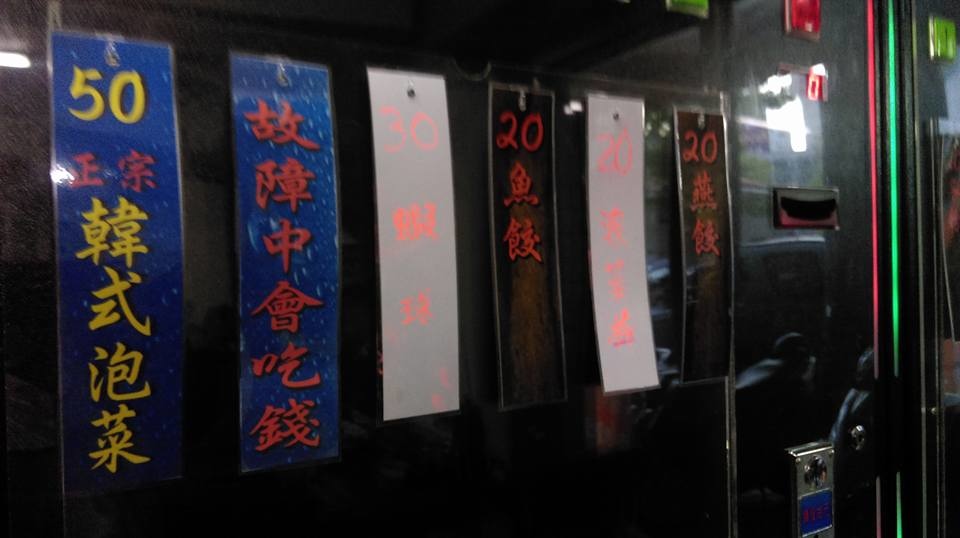 50
正宗
韓式泡菜
故障中會吃錢
30
蝦球
20
魚餃
20
20
燕餃